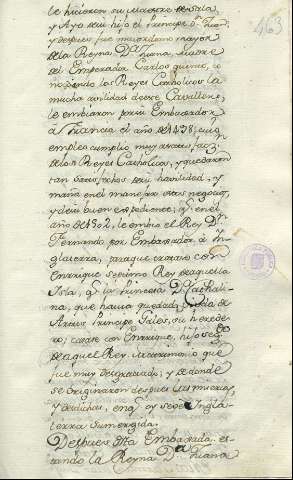 le hicieron su Maestre Sala,
y Ayo de su hijo el Principe Dn. Juan
y despues fue maiordomo mayor
de la Reyna Da. Juana, Madre
del Emperador Carlos quinto, co
nociendo los Reyes Catholicos la
mucha calidad de este Cavallero,
le embiaron por su Embaxador
á Francia el año de 1498, cuio
empleo cumplio muy a satisfaz.n
de los Reyes Catholicos, y quedaron
tan satisfechos de su havilidad, y
maña en el manejar otros negocios,
y de su buen expediente, q.e en el
año de 1502, le embia el Rey Dn.
Fernando, por Embaxador á In
glaterra, para que tratase con
Enrrique septimo Rey de aquella
Isla, q.e la Princesa Da. Cathali
na, que havia quedado Viuda de
Artus Principe Gales, su herede
ro; casase con Enrrique, hijo seg.do
de aquel Rey, lo que
fue muy desgraciado; y de donde
se originaron despues las miserias,
y desdichas, en q.e oy se ve Ingla-
terra sumergida.
Despues esta Embaxada, es-
tando la Reyna Da. Juana
463